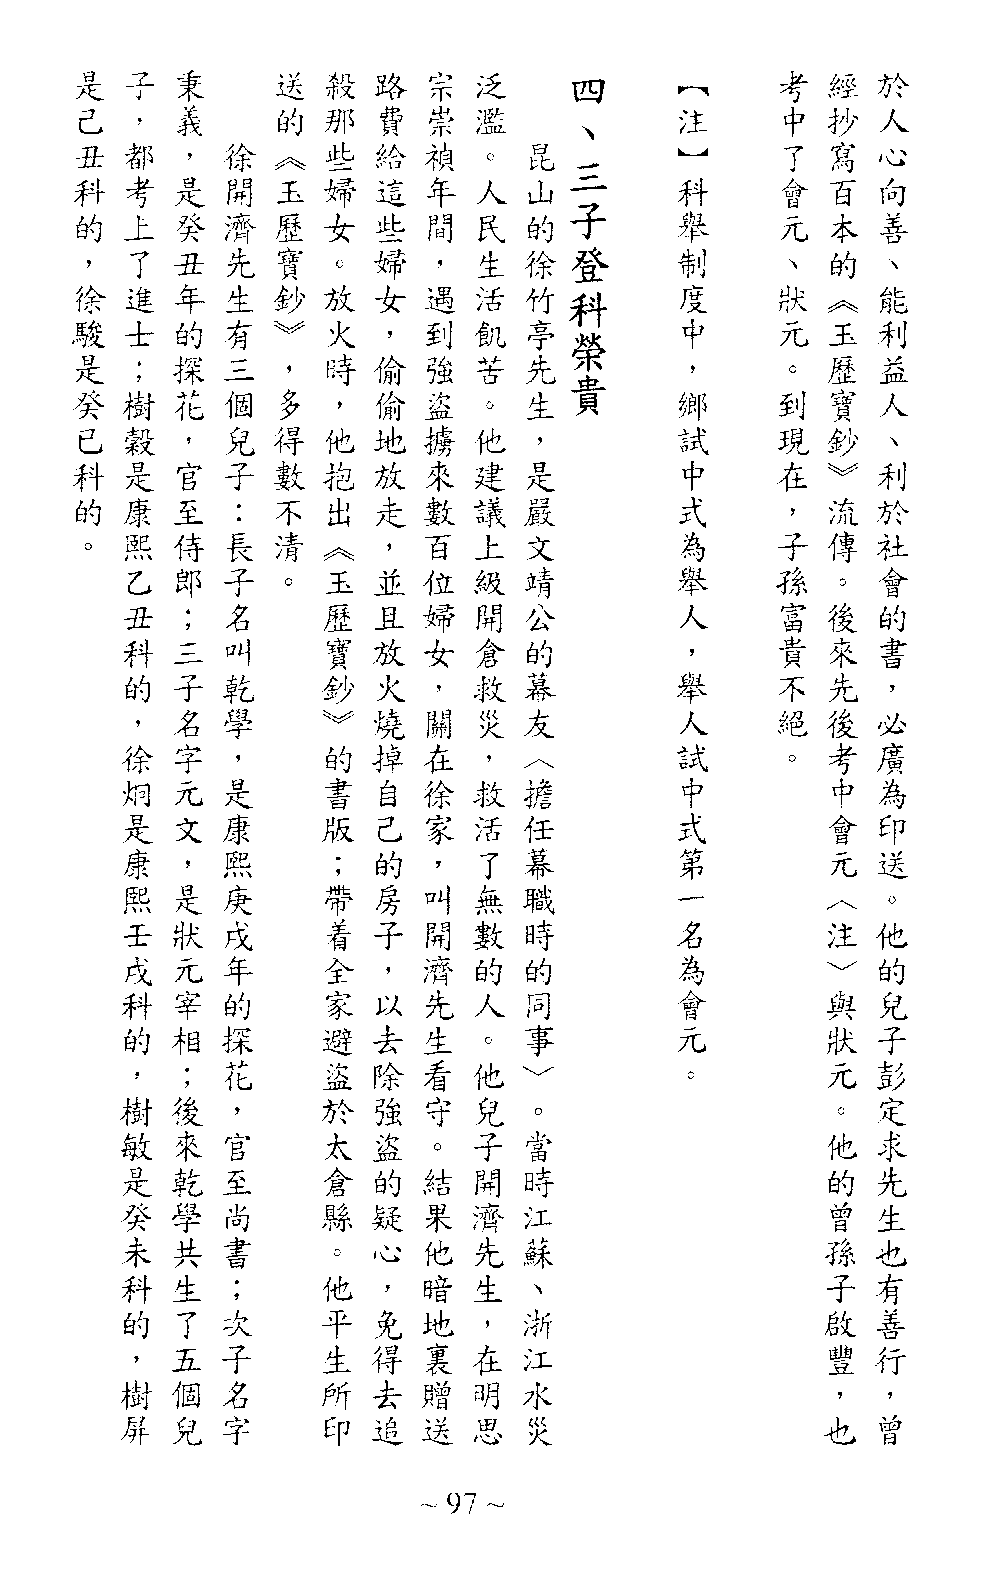 於人心向善、能利益人、利於社會的書，必廣為印送。他的兒子彭定求先生也有善行，曾
經抄寫百本的《玉歷寶鈔》流傳。後來先後考中會元〈注〉與狀元。他的曾孫子啟豐，也
考中了會元、狀元。到現在，子孫富貴不絕。
【注】科舉制度中，鄉試中式為舉人，舉人試中式第一名為會元。
四、三子登科榮貴
昆山的徐竹亭先生，是嚴文靖公的幕友〈擔任幕職時的同事〉。當時江蘇、浙江水災
泛濫。人民生活飢苦。他建議上級開倉救災，救活了無數的人。他兒子開濟先生，在明思
宗崇禎年間，遇到強盜擄來數百位婦女，關在徐家，叫開濟先生看守。結果他暗地裏贈送
路費給這些婦女，偷偷地放走，並且放火燒掉自己的房子，以去除強盜的疑心，免得去追
殺那些婦女。放火時，他抱出《玉歷寶鈔》的書版；帶着全家避盜於太倉縣。他平生所印
送的《玉歷寶鈔》，多得數不清。
徐開濟先生有三個兒子：長子名叫乾學，是康熙庚戌年的探花，官至尚書；次子名字
秉義，是癸丑年的探花，官至侍郎；三子名字元文，是狀元宰相；後來乾學共生了五個兒
子，都考上了進士；樹穀是康熙乙丑科的，徐炯是康熙壬戌科的，樹敏是癸未科的，樹屏
是己丑科的，徐駿是癸巳科的。
~97~